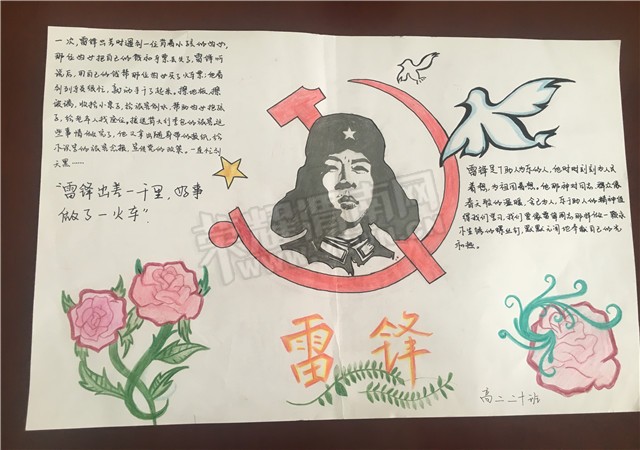 一次,雷锋出差时遇到一位背着小孩的妇女,
那位妇女把自己的钱和车票丢失了,雷锋听
说后,用自己的钱帮那位妇女买了火车票;他看
到列车员很忙,就动手干了起来。擦地板,擦
玻璃,收拾小桌子,给旅客倒水,帮助妇女抱孩
子,给老年人找座位,接送背大行李包的旅客。这
些事情做完了,他又拿出随身带的报纸,给
不认识的旅客念报,宣传党的政策。一直忙到
天黑……
"雷锋出差一千里,好事
做了一火车".
雷锋是个助人为乐的人,他时时刻刻为人民
着想,为祖国着想,他那种对同志、群众像
春天般的温暖,舍己为人,乐于助人的精神值
得我们学习,我们要像雷锋同志那样做一颗永
不生锈的螺丝钉,默默无闻地奉献自己的光
和热。
雷锋
高二二十班